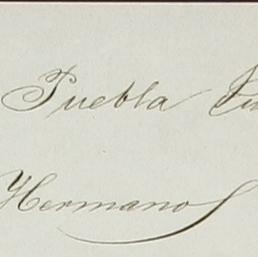 Puebla
Hermano